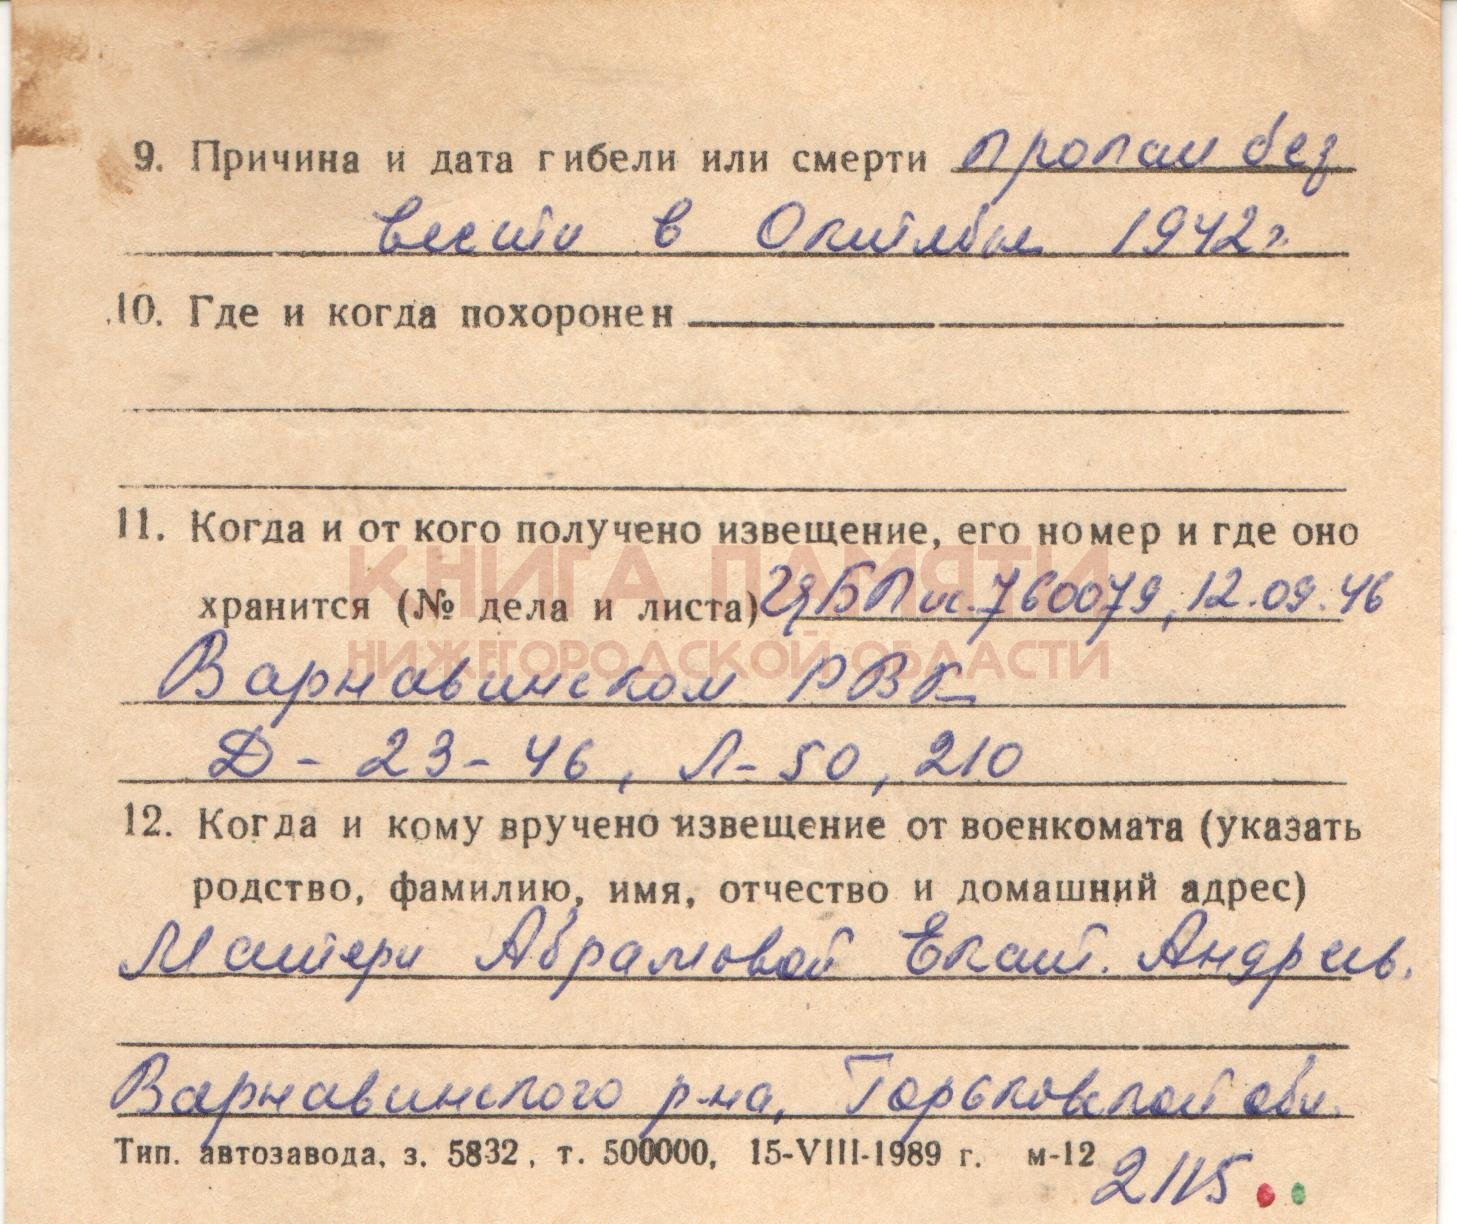 9. Причина и дата гибели или смерти пропал без
вести в Октябре 1942г.
10. Где и когда похоронен
11. Когда и от кого получено извещение, его номер и где оно
КНИГА ПАМЯТИ
хранится (№ дела и листа) 760079, 12.09.46
НИЖЕГОРОДСКОЙ ОБЛАСТИ
Варнавинском РВК
Д - 23 - 46, Л - 50, 210
12. Когда и кому вручено извещение от военкомата (указать
родство, фамилию, имя, отчество и домашний адрес)
Матери Абрамовой Екат. Андреев.
Варнавинского р-на, Горьковской обл.
Тип. автозавода, з. 5832, т. 500000, 15-VIII-1989 г. м-12
2115